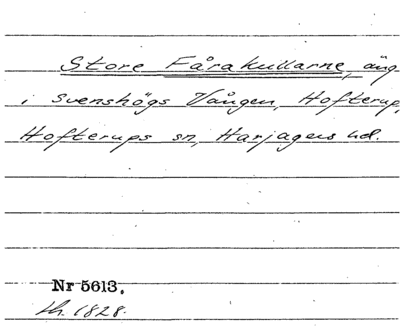 Store Fårakullarne, äng
i Svenshögs Vången, Hofterup,
Hofterups sn, Harjagers hd.
Nr 5613.
th. 1828.